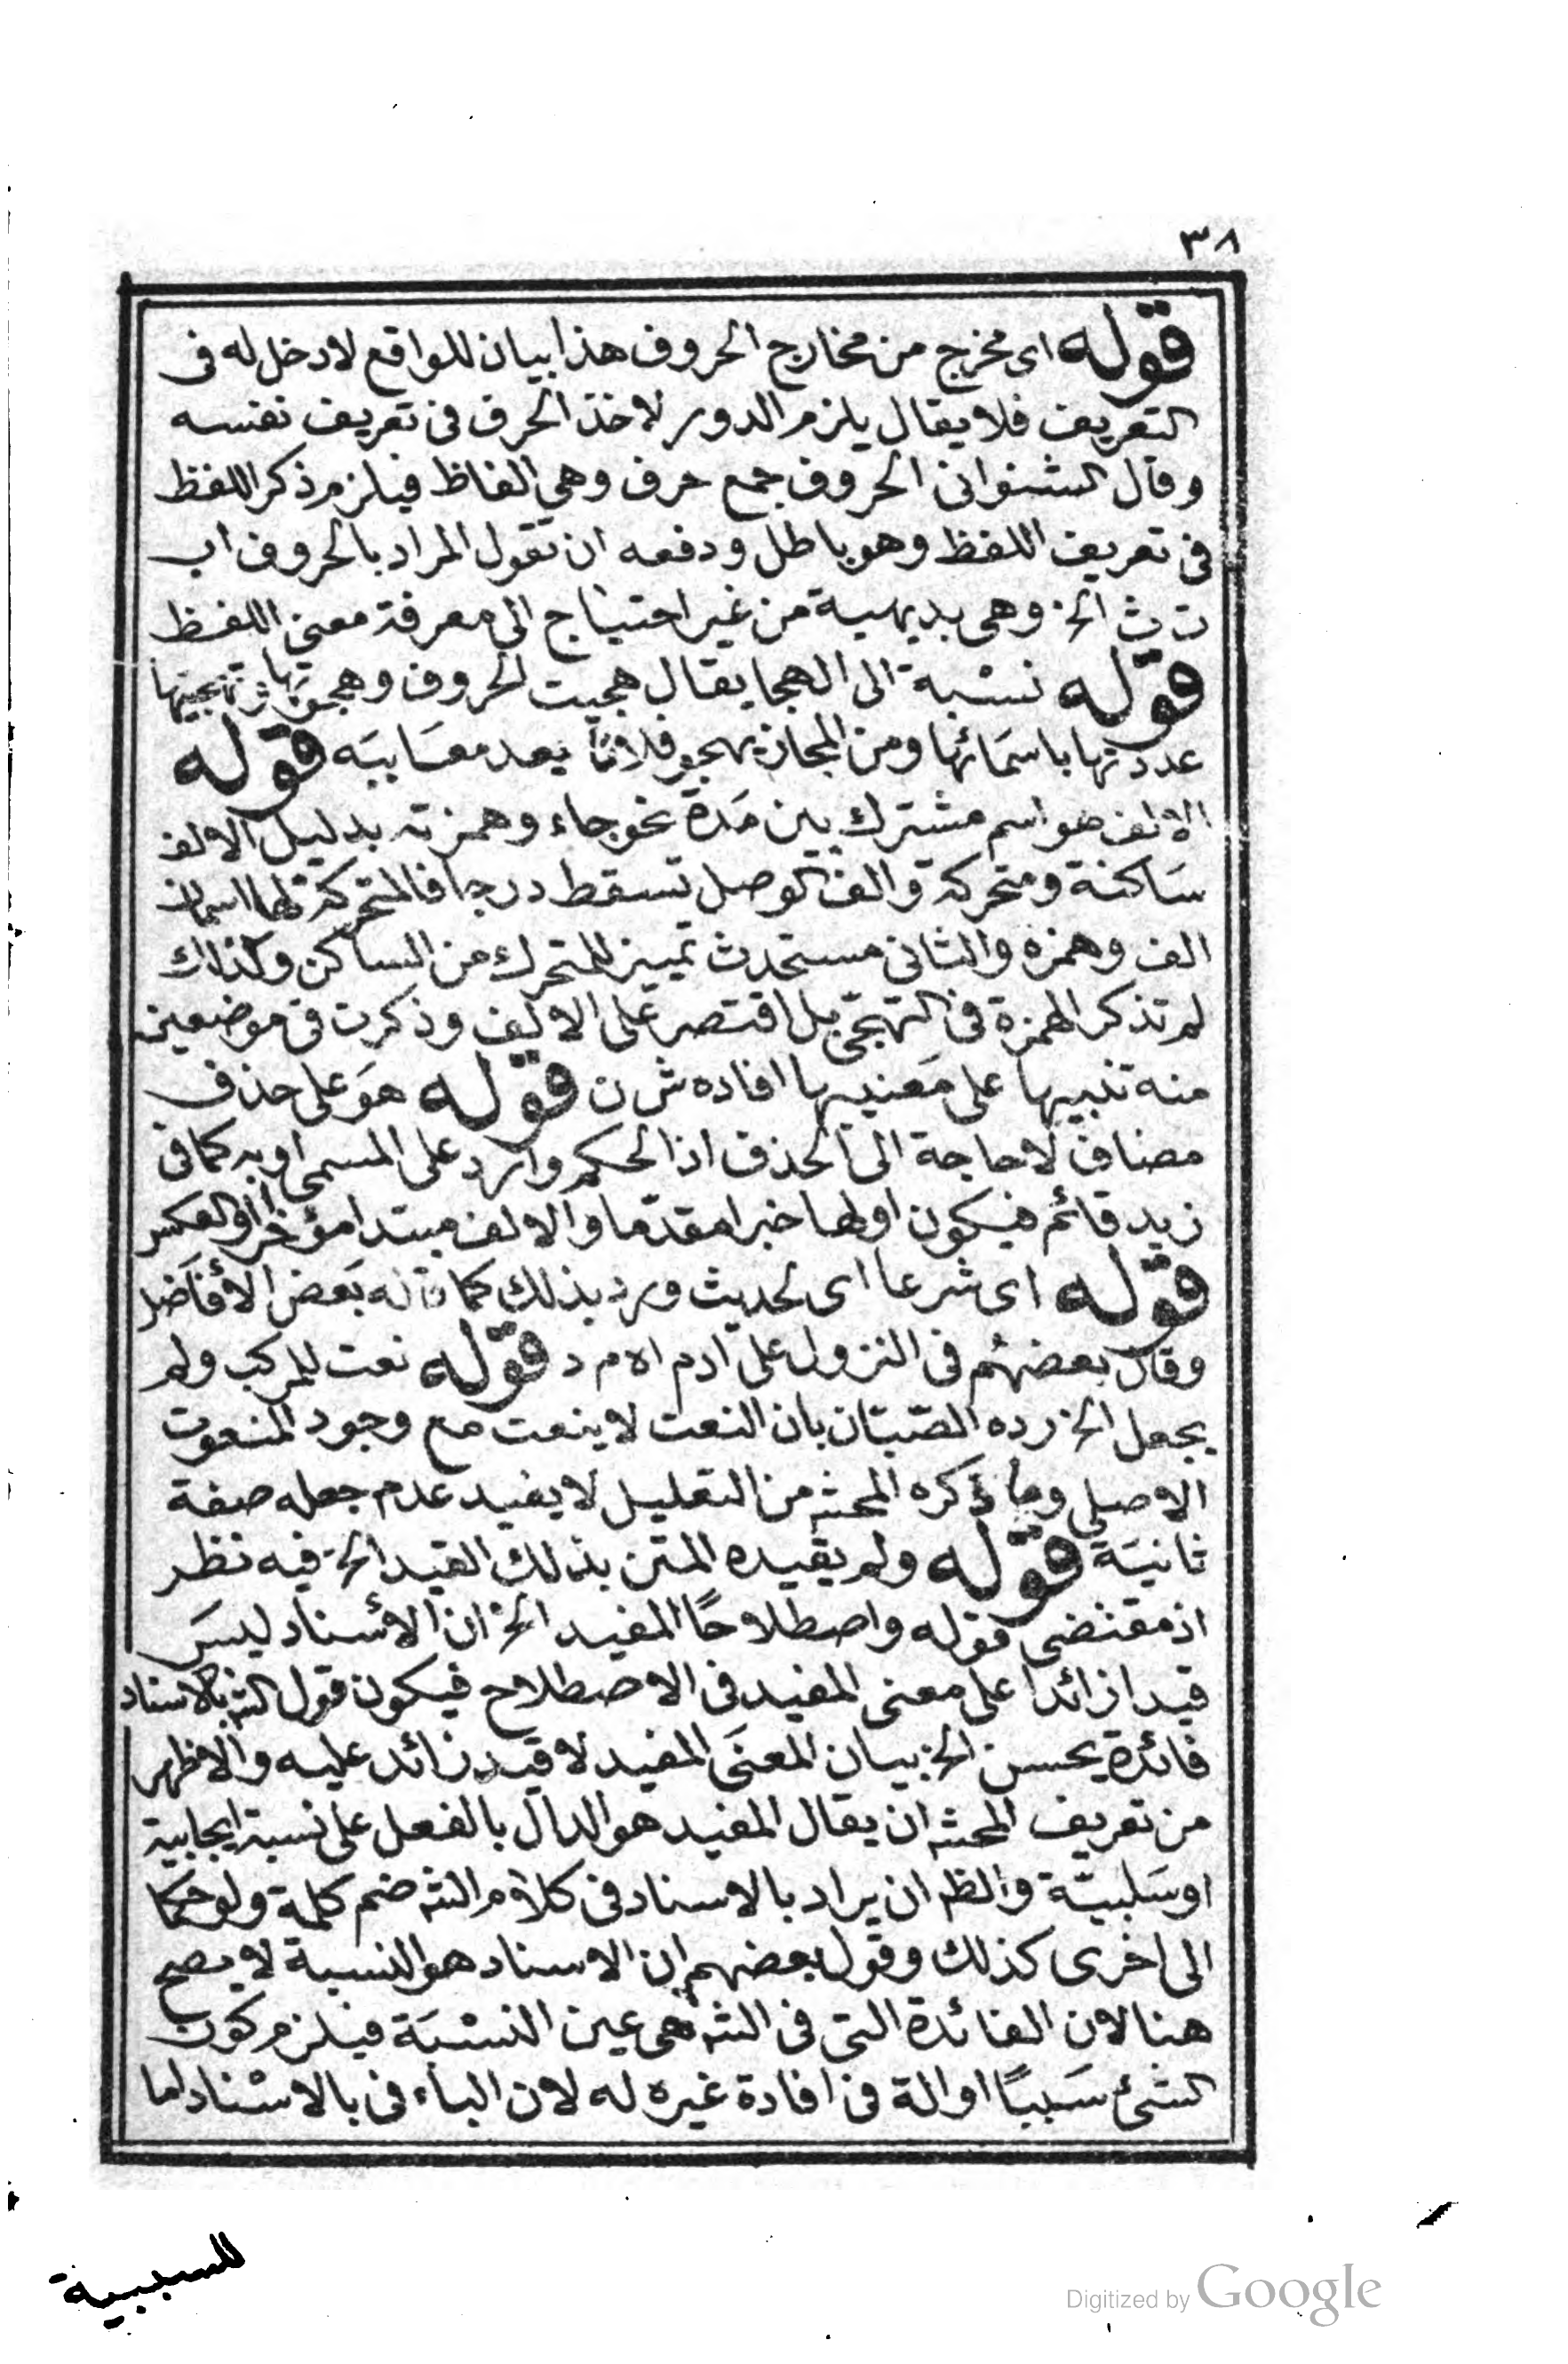 ٣٨
قوله اى مخرج من مخارج الحروف هذا بيان للواقع لا دخل له فى
التعريف فلا يقال يلزم الدور لاخذ الحرف فى تعريف نفسه
وقال الشنوانى الحروف جمع حرف وهى الفاظ فيلزم ذكر اللفظ
فى تعريف اللفظ وهو باطل ودفعه ان تقول المراد بالحروف اب
ت ث الخ وهى بديهية من غير احتياج الى معرفة معنى اللفظ
قوله نسبة الى الهجا يقال هجيت الحروف وهجوتها وتهجيتها
عددتها باسمائها ومن المجاز يهجو فلانا يعد معايبه قوله
الالف هو اسم مشترك بين مدة نحو جاء وهمزته بدليل الالف
ساكنة ومتحركة والف الوصل تسقط درجا فالمتحركة لها اسمان
الف وهمزه والثانى مستحدث تمييز للمتحرك من الساكن ولذلك
لم تذكر الهمزة فى التهجى بل اقتصر على الالف وذكرت فى موضعين
منه تنبيها على معنييها افاده ش ن قوله هو على حذف
مضاف لا حاجة الى الحذف اذ الحكم وارد على المسمى او به كما فى
زيد قائم فيكون اولها خبرا مقدّما والالف مبتدا مؤخرا او العكس
قوله اى شرعا اى لحديث ورد بذلك كما قاله بعض الأفاضل
وقال بعضهم فى النزول على ادم اه م د قوله نعت للمركب ولم
يجعل الخ رده الصّبّان بان النعت لا ينعت مع وجود المنعوت
الاصلي وما ذكره المحشى من التعليل لا يفيد عدم جعله صفة
ثانية قوله ولم يقيده المتن بذلك القيد الخ فيه نظر
اذ مقتضى قوله واصطلاحًا المفيد الخ ان الأسناد ليس
قيدا زائدا على معنى المفيد فى الاصطلاح فيكون قول الشه بالاسناد
فائدة يحسن الخ بيان المعنى المفيد لا قيد زائد عليه والاظهر
من تعريف المحشه ان يقال المفيد هو الدال بالفعل على نسبة ايجابية
او سلبيّة والظ ان يراد بالاسناد فى كلام الشه ضم كلمة ولو حكما
الى اخرى كذلك وقول بعضهم ان الاسناد هو النسبة لا يصح
هنا لان الفائدة التى فى الشه هى عين النسبة فيلزم كون
الشئ سببًا او الة فى افادة غيره له لان الباء فى بالاسناد اما
للسببية
Digitized by Google